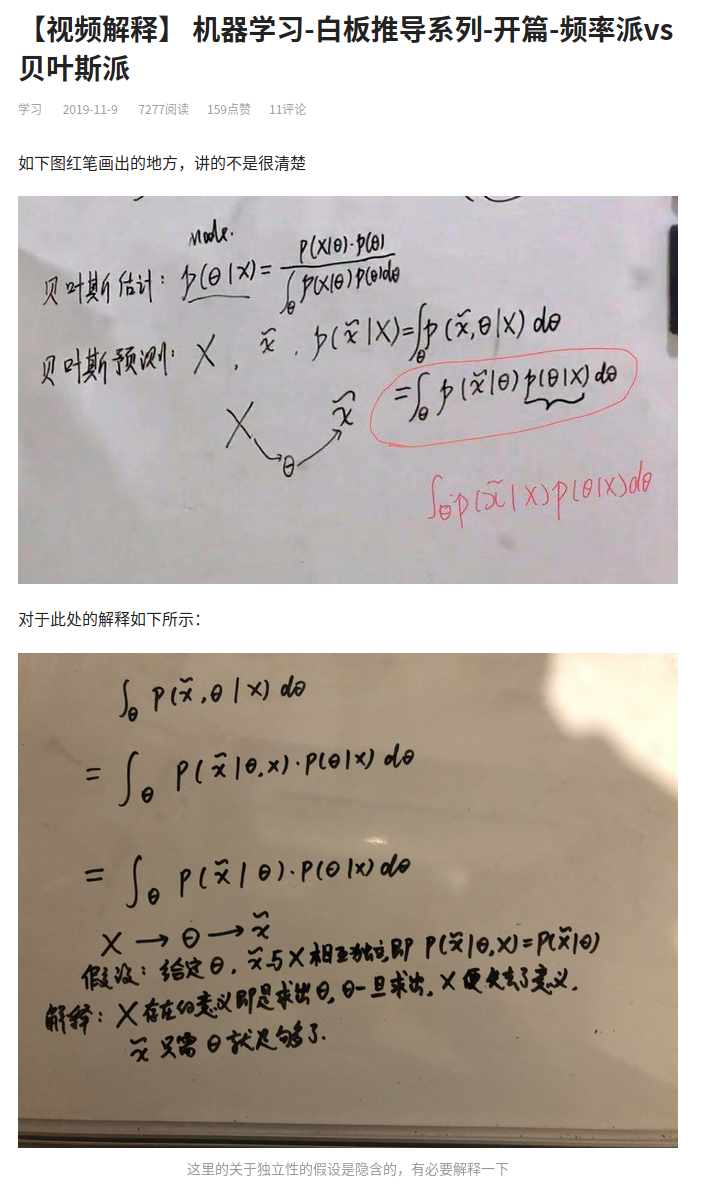 【视频解释】 机器学习-白板推导系列-开篇-频率派vs
贝叶斯派
学习 2019-11-9 7277阅读 159点赞 11评论
如下图红笔画出的地方，讲的不是很清楚
贝叶斯估计: p(θ|x)= p(X|θ)·p(θ) / ∫θ p(X|θ)p(θ)dθ
贝叶斯预测: X , x̃ , p(x̃|X)=∫θ p(x̃,θ|X) dθ
=∫θ p(x̃|θ)p(θ|X)dθ
X x̃
θ
∫θ p(x̃|X)p(θ|X)dθ
对于此处的解释如下所示：
∫θ P(x̃,θ|x) dθ
= ∫θ P(x̃|θ,x)·P(θ|x) dθ
= ∫θ P(x̃|θ)·P(θ|x) dθ
X → θ → x̃
假设: 给定θ, x̃与X相互独立,即 P(x̃|θ,X)=P(x̃|θ)
解释: X存在的意义即是求出θ, θ一旦求出, X便失去了意义.
x̃ 只需 θ 就足够了.
这里的关于独立性的假设是隐含的，有必要解释一下